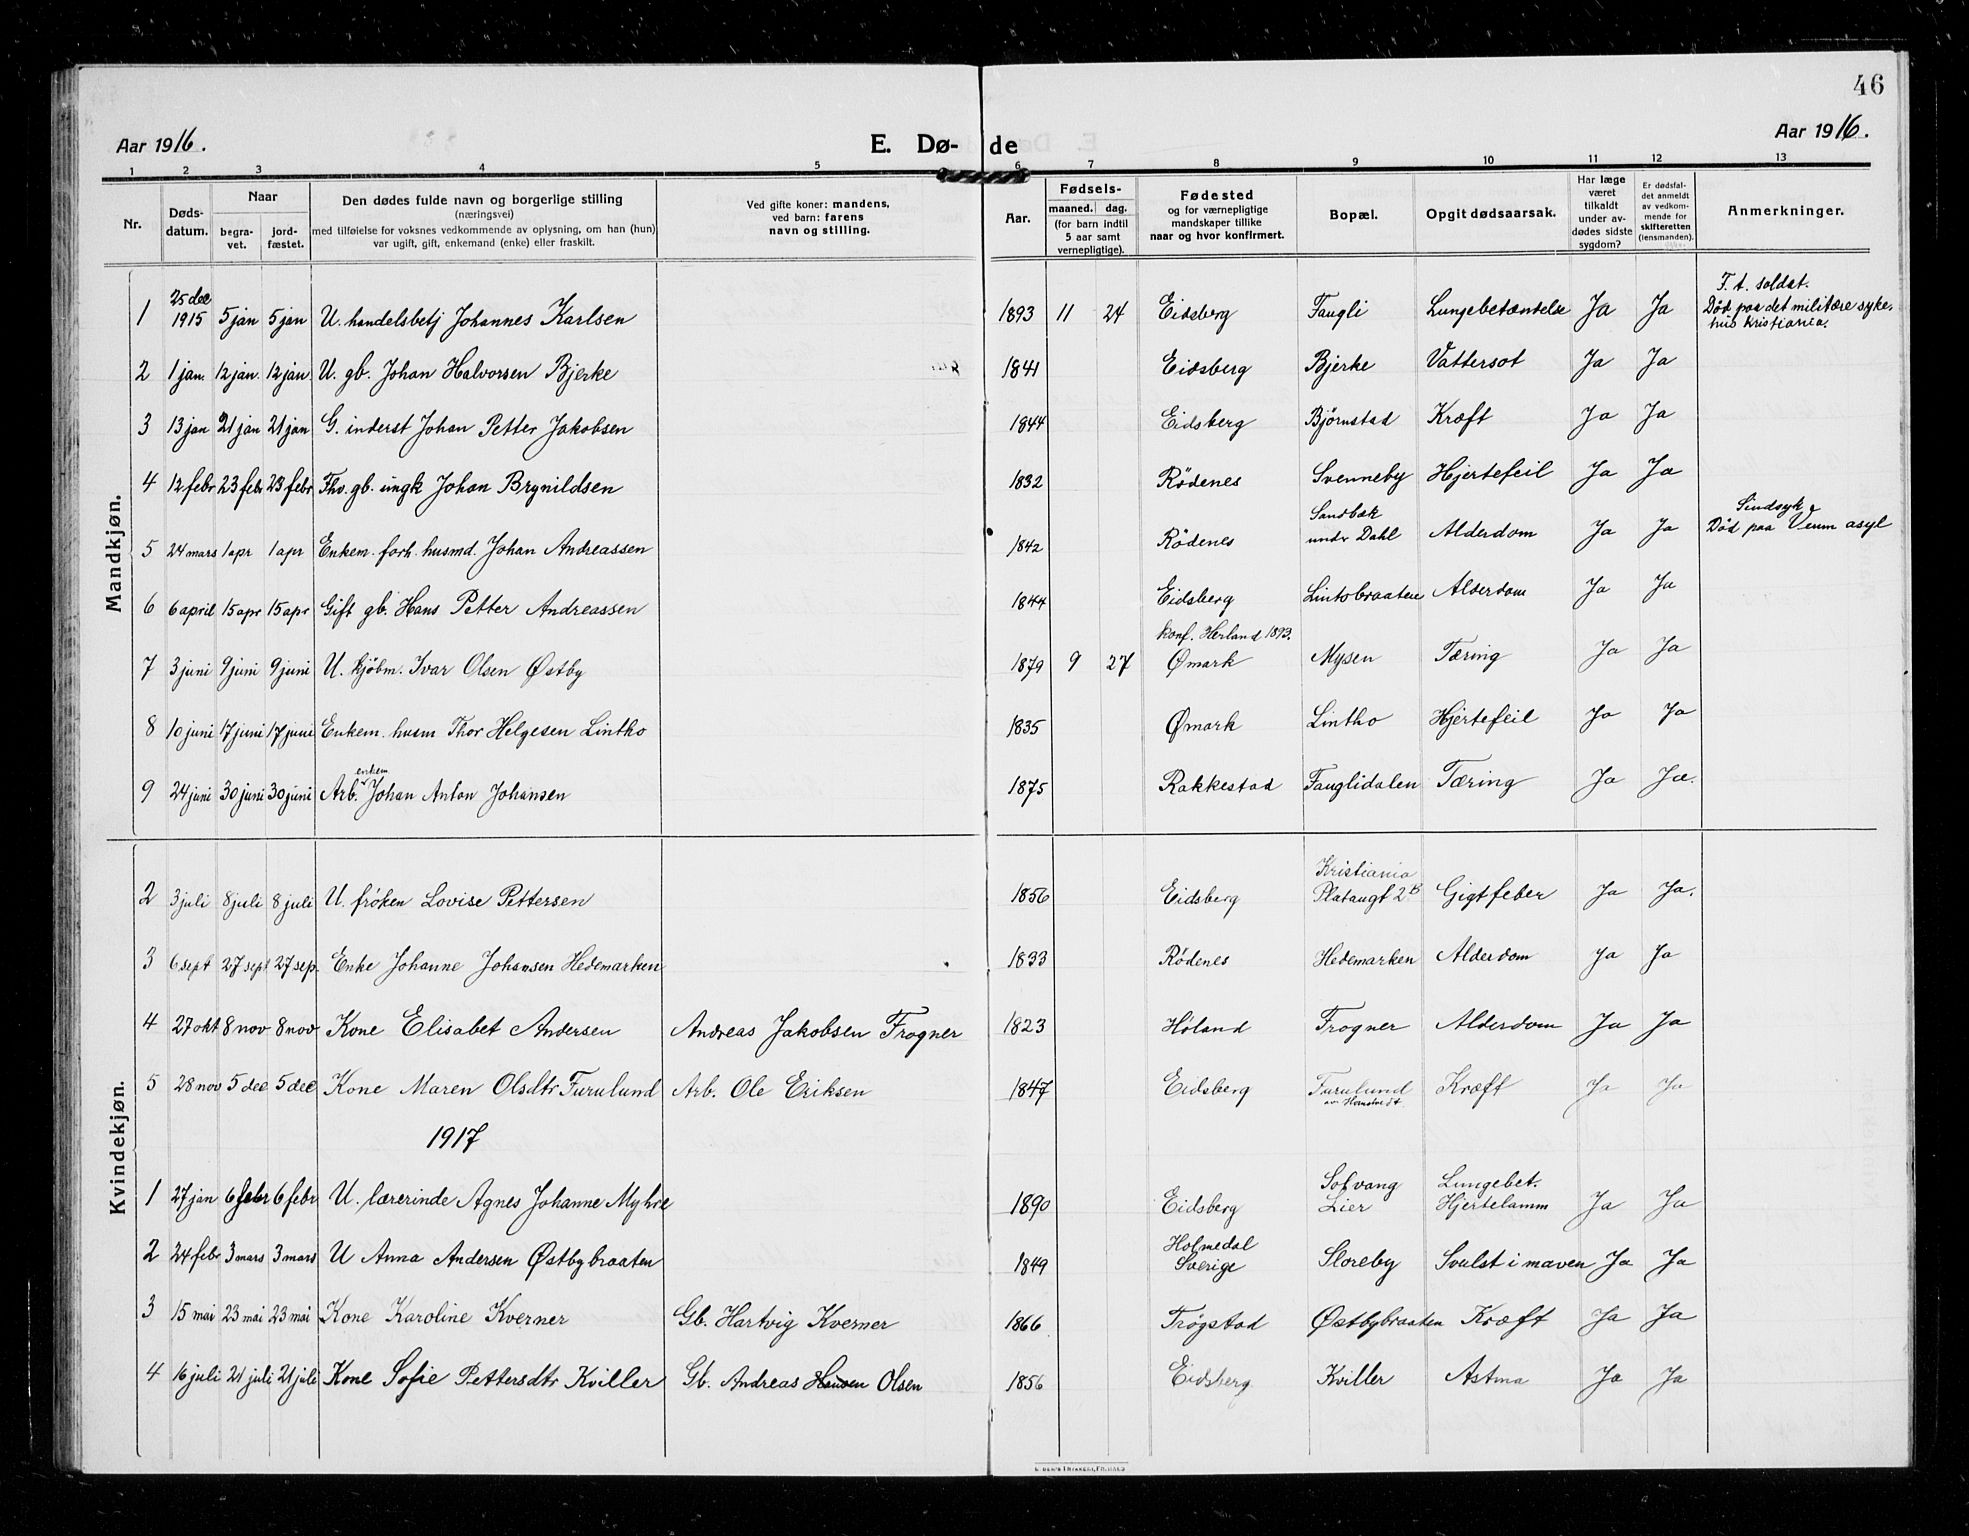 46
Aar 1916.
E. Dø- de
Aar 1916.
1 2 3 4 5 6 7 8 9 10 11 12 13
Nr.
Døds-datum.
Naar
begra-vet.
jord-fæstet.
Den dødes fulde navn og borgerlige stilling
(næringsvei)
med tilføielse for voksnes vedkommende av oplysning, om han (hun)
var ugift, gift, enkemand (enke) eller fraskilt.
Ved gifte koner: mandens,
ved barn: farens
navn og stilling.
Aar.
Fødsels-
maaned. dag.
(for barn indtil
5 aar samt
vernepligtige).
Fødested
og for værnepligtige
mandskaper tillike
naar og hvor konfirmert.
Bopæl.
Opgit dødsaarsak.
Har læge
været
tilkaldt
under av-
dødes sidste
sygdom?
Er dødsfal-
det anmeldt
av vedkom-
mende for
skifteretten
(lensmanden).
Anmerkninger.
Mandkjøn.
1 25 dec 1915 5 jan 5 jan U. handelsbetj Johannes Karlsen 1893 11 24 Eidsberg Faugli Lungebetændelse Ja Ja F. t. soldat. Død paa det militære syke-hus Kristiania.
2 1 jan. 12 jan. 12 jan U. gb. Johan Halvorsen Bjerke 1841 Eidsberg Bjerke Vattersot Ja Ja
3 13 jan 21 jan 21 jan G. inderst Johan Petter Jakobsen 1844 Eidsberg Bjørnstad Kræft Ja Ja
4 12 febr 23 febr 23 febr Fhv. gb. ungk Johan Brynildsen 1832 Rödenes Svenneby Hjertefeil Ja Ja
5 24 mars 1 apr 1 apr Enkem. forh. husmd. Johan Andreassen 1842 Rödenes Sandbæk under Dahl Alderdom Ja Ja Sindsyk. Død paa Veum asyl
6 6 april 15 apr 15 apr Gift gb. Hans Petter Andreassen 1844 Eidsberg Lintobraaten Alderdom Ja Ja
7 3 juni 9 juni 9 juni U. kjöbm. Ivar Olsen Østby 1879 9 27 konf. Herland 1893. Ømark Mysen Tæring Ja Ja
8 10 juni 17 juni 17 juni Enkem. husm Thor Helgesen Lintho 1835 Ømark Lintho Hjertefeil Ja Ja
9 24 juni 30 juni 30 juni Arb. enkem Johan Anton Johansen 1875 Rakkestad Fauglidalen Tæring Ja Ja.
Kvindekjøn.
2 3 juli 8 juli 8 juli U. fröken Lovise Pettersen 1856 Eidsberg Kristiania Plataugt 2B Gigtfeber Ja Ja.
3 6 sept 27 sept 27 sep. Enke Johanne Johansen Hedemarken 1833 Rödenes Hedemarken Alderdom Ja Ja
4 27 okt 8 nov 8 nov Kone Elisabet Andersen Andreas Jakobsen Frogner 1823 Höland Frogner Alderdom Ja Ja
5 28 nov 5 dec 5 dec Kone Maren Olsdtr Furulund Arb. Ole Eriksen 1847 Eidsberg Furulund Kræft Ja Ja
1917
1 27 jan 6 febr 6 febr U. lærerinde Agnes Johanne Myhre 1890 Eidsberg Solvang Lier Lungebet. Hjertelamm Ja Ja
2 24 febr 3 mars 3 mars U Anna Andersen Østbybraaten 1849 Holmedal Sverige Sloreby Svulst i maven Ja Ja
3 15 mai 23 mai 23 mai Kone Karoline Kverner Gb. Hartvig Kverner 1866 Trögstad Østbybraaten Kræft Ja Ja
4 16 juli 21 juli 21 juli Kone Sofie Pettersdtr Kviller Gb. Andreas Hansen Olsen 1856 Eidsberg Kviller Astma Ja Ja